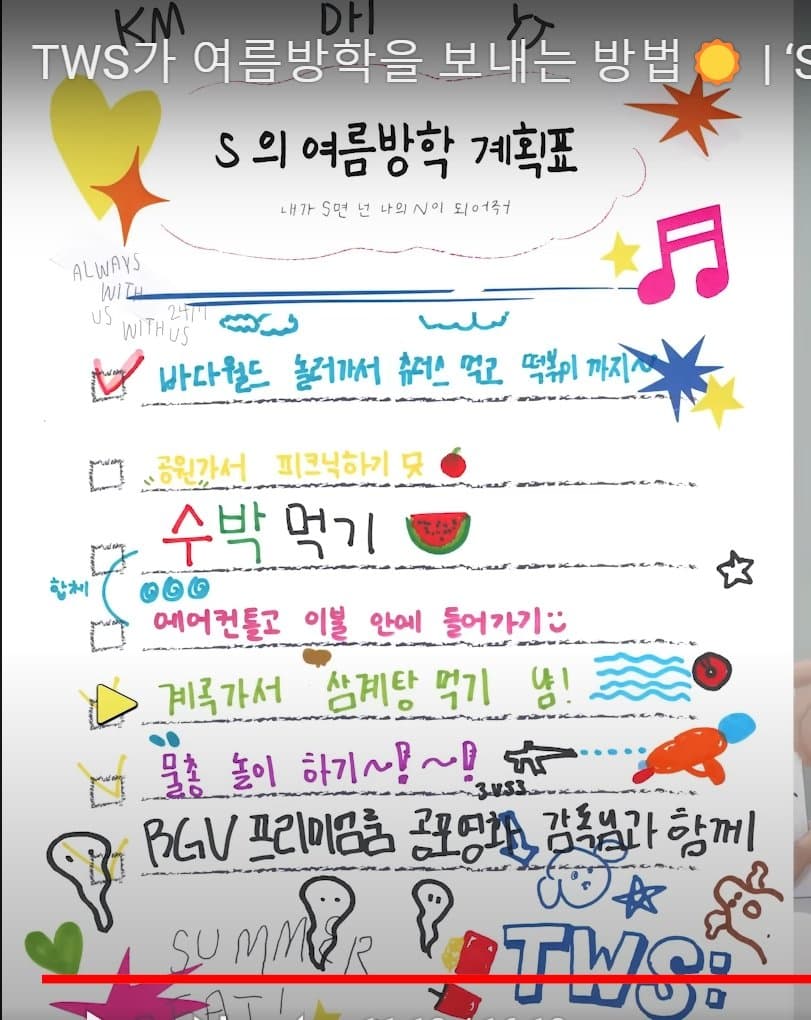 KM DH
TWS가 여름방학을 보내는 방법 | ‘S
S의 여름방학 계획표
내가 S면 넌 나의 N이 되어줘
ALWAYS
WITH
US 24/7
WITH US
바다월드 놀러가서 츄러스 먹고 떡볶이 까지~
공원가서 피크닉하기 굿
수박 먹기
합체
에어컨틀고 이불 안에 들어가기
계곡가서 삼계탕 먹기 냠!
물총 놀이 하기~! ~!
3VS3
BGV 프리미엄룸 공포영화 감독님과 함께
SUMMER
TWS: